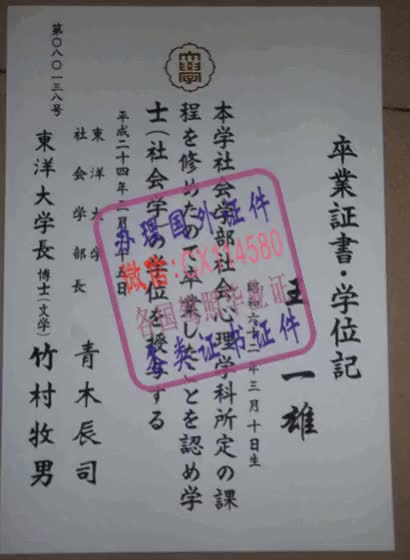 卒業証書・学位記
王 一雄
年三月十日生
本学社会学部社会心理学科所定の課
程を修めたので卒業したことを認め学
士(社会学)の学位を授与する
平成二十四年
東洋大学
社会学部長 青木辰司
東洋大学長 博士(文学) 竹村牧男
第〇八〇一三八号
办理国外证件
微信:CX114580
各国驾照毕业证
各类证书证件